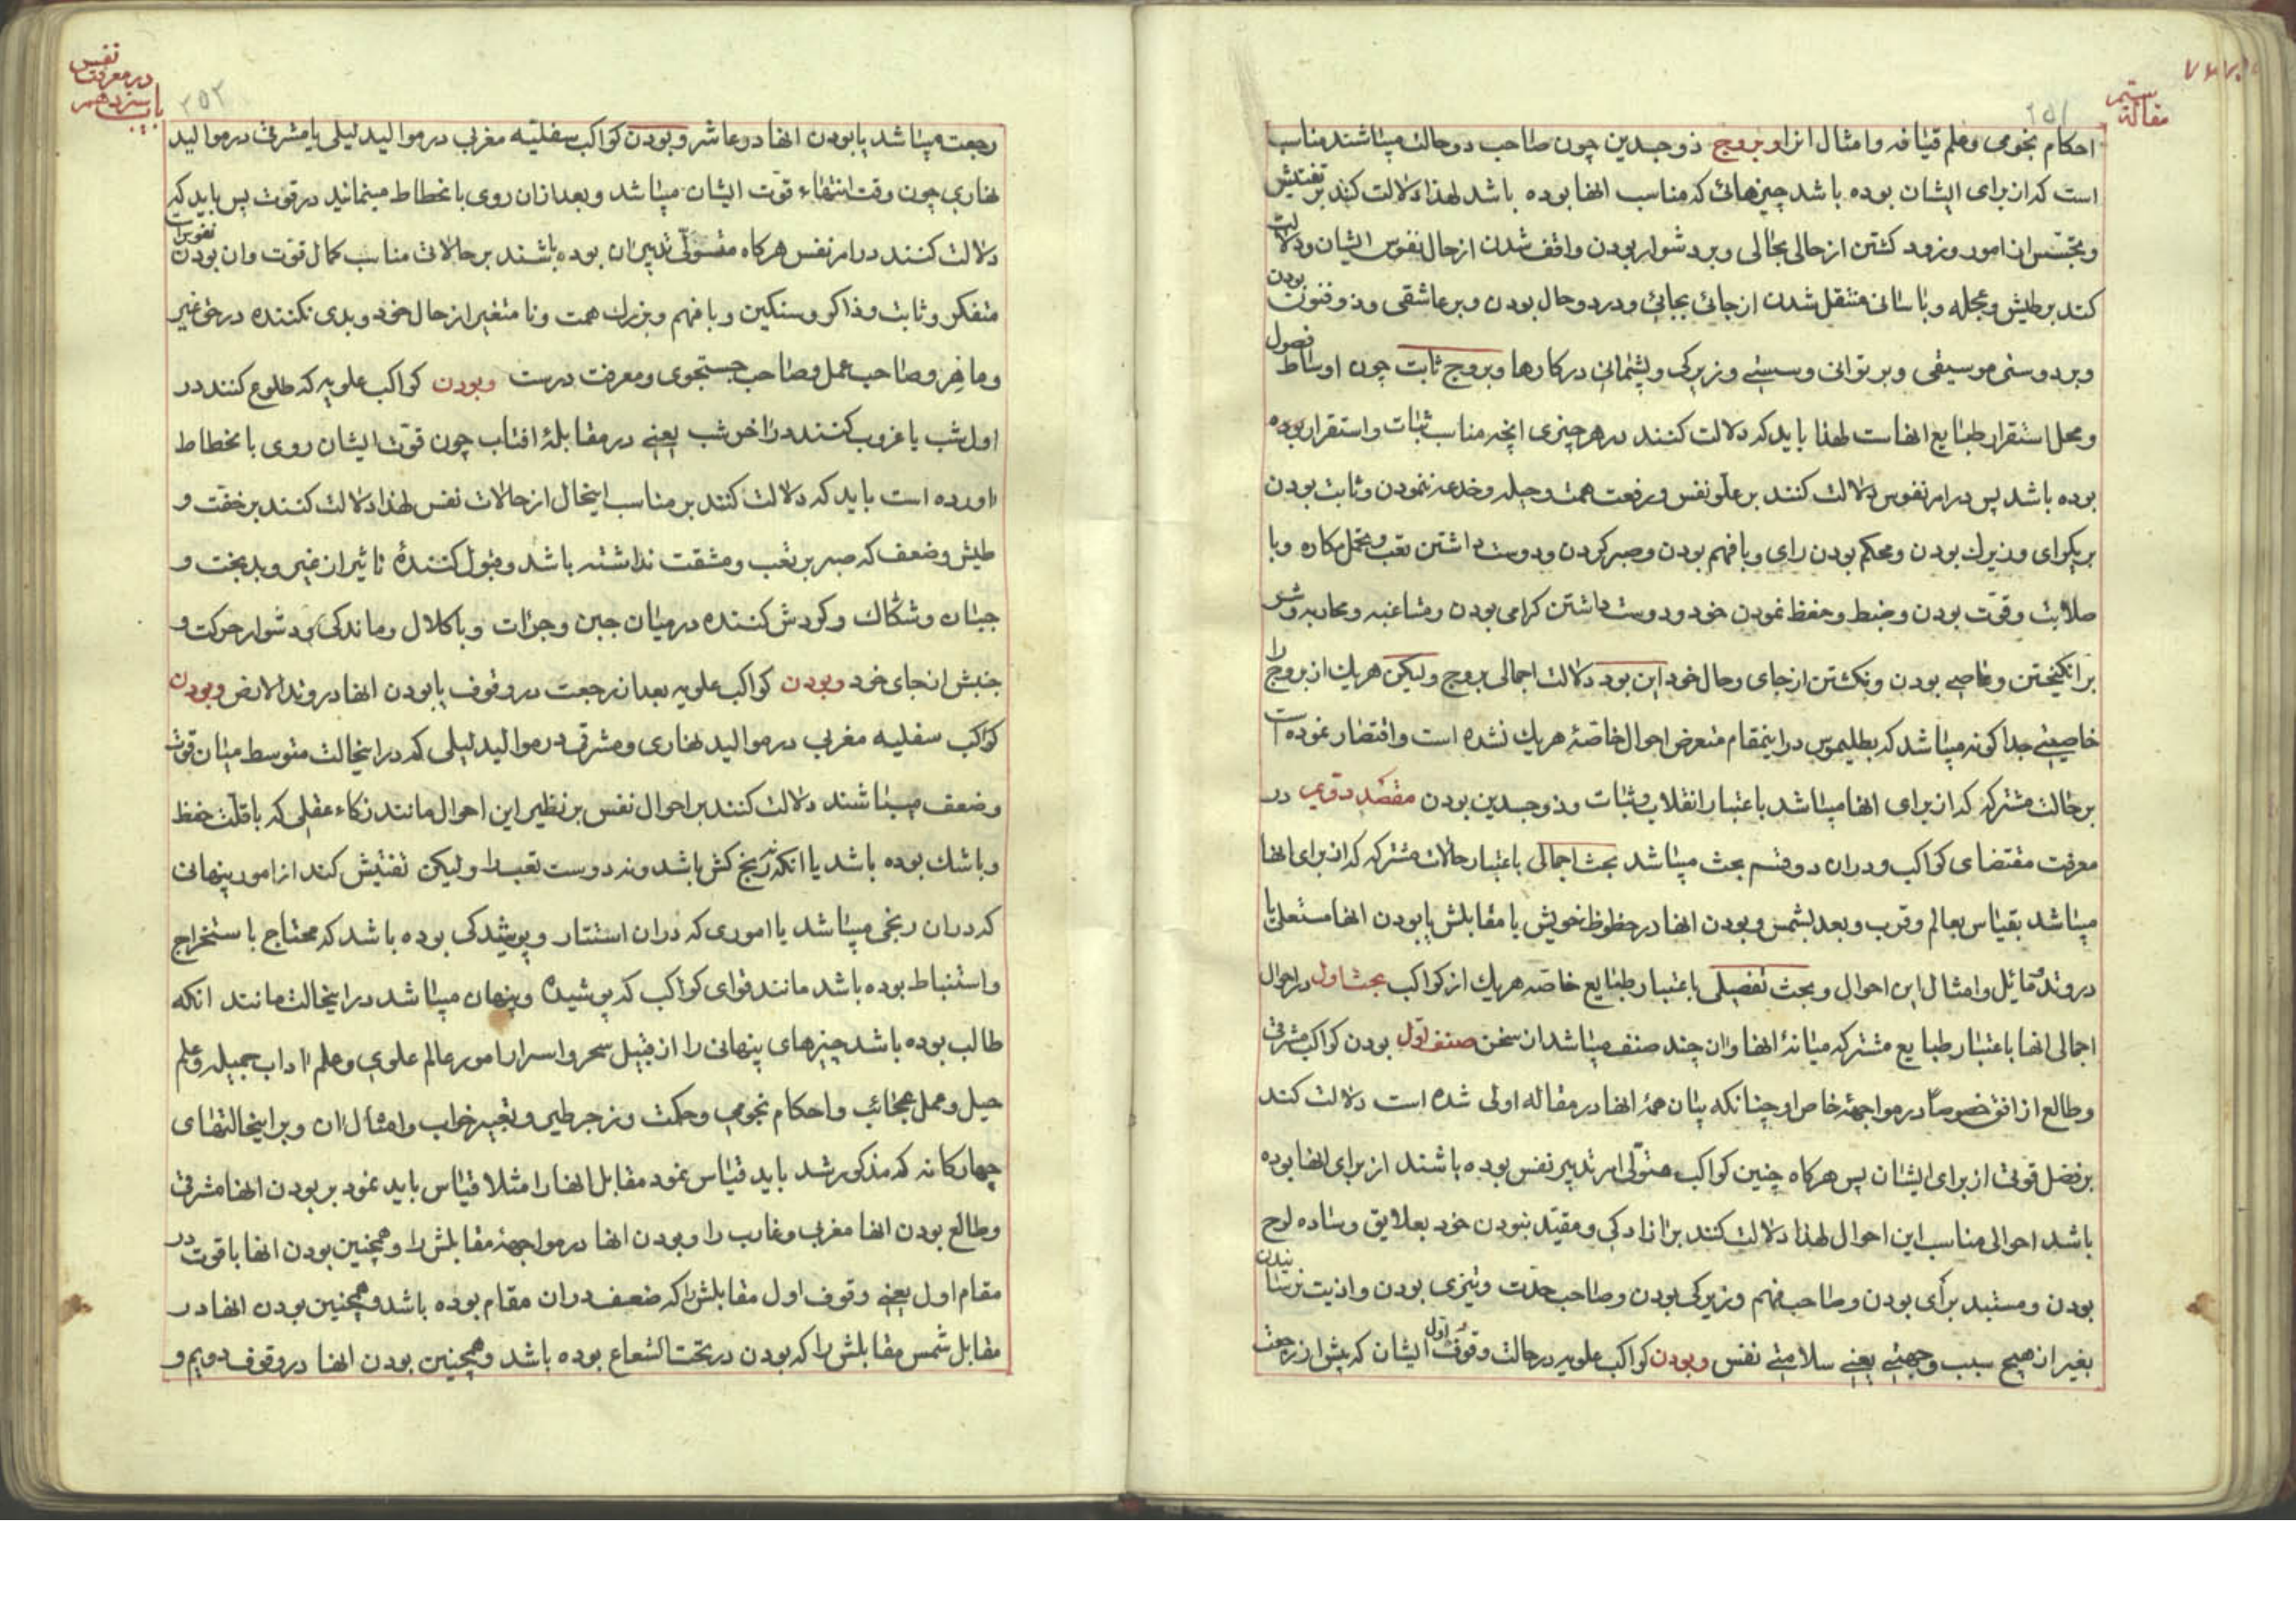 مقالهٔ سیم
۲۵۱
احکام نجومی و علم قیافه و امثال انرا و بروج ذوجسدین چون صاحب دو حالت میباشند مناسب
است که از برای ایشان بوده باشد چیزهائی که مناسب انها بوده باشد لهذا دلالت کند بر تفتیش
و تجسس از امور و زود کشتن از حالی بحالی و بر دشوار بودن واقف شدن از حال نفوس ایشان و دلالت
کند بر طیش و عجله و باسانی منتقل شدن از جائی بجائی و در دو حال بودن و بر عاشقی و ذوفنون بودن
و بر دوستی موسیقی و بر توانی و سستی و زیرکی و پشیمانی در کارها و بروج ثابت چون اوساط فصول
و محل استقرار طبایع انهاست لهذا باید که دلالت کنند در هر چیزی انچه مناسب ثبات و استقرار بوده
بوده باشد پس در امر نفوس دلالت کنند بر علو نفس و رفعت همت و حیله و خدعه ننمودن و ثابت بودن
بر یکرای و زیرک بودن و محکم بودن رای و با فهم بودن و صبر کردن و دوست داشتن تعب و تحمل مکاره و با
صلابت و قوّت بودن و ضبط و حفظ نمودن خود و دوست داشتن کرامی بودن و مشاغبه و محاربه و شر
برانکیختن و عاصی بودن و نکشتن از جای و حال خود این بود دلالت اجمالی بروج و لیکن هر یک از بروج را
خاصیتی جداکونه میباشد که بطلیموس در اینمقام متعرض احوال خاصّهٔ هر یک نشده است و اقتصار نموده است
بر حالت مشترکه که از برای انها میباشد باعتبار انقلاب و ثبات و ذوجسدین بودن مقصد دویم در
معرفت مقتضای کواکب و در ان دو قسم بحث میباشد بحث اجمالی باعتبار حالات مشترکه که از برای انها
میباشد بقیاس بعالم و قرب و بعد بشمس و بودن انها در حظوظ خویش یا مقابلش یا بودن انها مستعلی یا
در وتد مائل و امثال این احوال و بحث تفصیلی باعتبار طبایع خاصه هر یک از کواکب بحث اول در احوال
اجمالی انها باعتبار طبایع مشترکه میانهٔ انها و ان چند صنف میباشد از سخن صنف اوّل بودن کواکب مشرقی
و طالع از افق خصوصاً در مواجههٔ خاص او چنانکه بیان همهٔ انها در مقاله اولی شده است دلالت کند
بر فضل قوتی از برای ایشان پس هرکاه چنین کواکب متولّی امر تدبیر نفس بوده باشند از برای انها بوده
باشد احوالی مناسب این احوال لهذا دلالت کنند بر ازادکی و مقید نبودن خود بعلایق و ساده لوح
بودن و مستبد برأی بودن و صاحب فهم و زیرکی بودن و صاحب حدّت و تیزی بودن و اذیت نرسانیدن
بغیر از هیچ سبب و جهتی یعنی سلامتی نفس و بودن کواکب علویه در حالت وقوف اول ایشان که پیش از رجعت
باب سیزدهم در معرفت نفس
۲۵۲
رجعت میباشد یا بودن انها در عاشر و بودن کواکب سفلیّه مغربی در موالید لیلی یا مشرقی در موالید
نهاری چون وقت انتهاء قوّت ایشان میباشد و بعد از ان روی بانحطاط مینمایند در قوت پس باید که
دلالت کنند در امر نفس هرکاه متولّی تدبیر ان بوده باشند بر حالات مناسب کمال قوّت و ان بودن نفوس
متفکر و ثابت و ذاکر و سنکین و با فهم و بزرک همت و نا متغیر از حال خود و بدی نکننده در حق غیر
و ماهر و صاحب عمل و صاحب جستجوی و معرفت درست و بودن کواکب علویه که طلوع کنند در
اول شب یا غروب کنند در اخر شب یعنی در مقابلهٔ افتاب چون قوّت ایشان روی بانحطاط
اورده است باید که دلالت کنند بر مناسب اینحال از حالات نفس لهذا دلالت کنند بر خفّت و
طیش و ضعف که صبر بر تعب و مشقت نداشته باشد و قبول کنندهٔ تاثیر از غیر و بدبخت و
جبان و شکاک و کردش کننده در میان جبن و جرات و با کلال و ماندکی و دشوار حرکت و
جنبش از جای خود و بودن کواکب علویه بعد از رجعت در وقوف یا بودن انها در وتد الارض و بودن
کواکب سفلیه مغربی در موالید نهاری و مشرقی در موالید لیلی که در اینحالت متوسط میان قوت
و ضعف میباشند دلالت کنند بر احوال نفس بر نظیر این احوال مانند ذکاء عقلی که با قلّت حفظ
و با شک بوده باشد یا انکه نه رنج کش باشد و نه دوست تعب را و لیکن تفتیش کند از امور پنهانی
که در ان رنجی میباشد یا اموری که در ان استتار و پوشیدکی بوده باشد که محتاج باستخراج
و استنباط بوده باشد مانند قوای کواکب که پوشیده و پنهان میباشد در اینحالت مانند انکه
طالب بوده باشد چیزهای پنهانی را از قبیل سحر و اسرار امور عالم علوی و علم اداب جمیله و علم
حیل و عمل عجائب و احکام نجومی و حکمت و زجر طیر و تعبیر خواب و امثال ان و بر اینحالتهای
چهارکانه که مذکور شد باید قیاس نمود مقابل انها را مثلا قیاس باید نمود بر بودن انها مشرقی
و طالع بودن انها مغربی و غارب را و بودن انها در مواجههٔ مقابلش را و همچنین بودن انها با قوت در
مقام اول یعنی وقوف اول مقابلش را که ضعف در ان مقام بوده باشد و همچنین بودن انها در
مقابل شمس مقابلش را که بودن در تحت الشعاع بوده باشد و همچنین بودن انها در وقوف دویم و